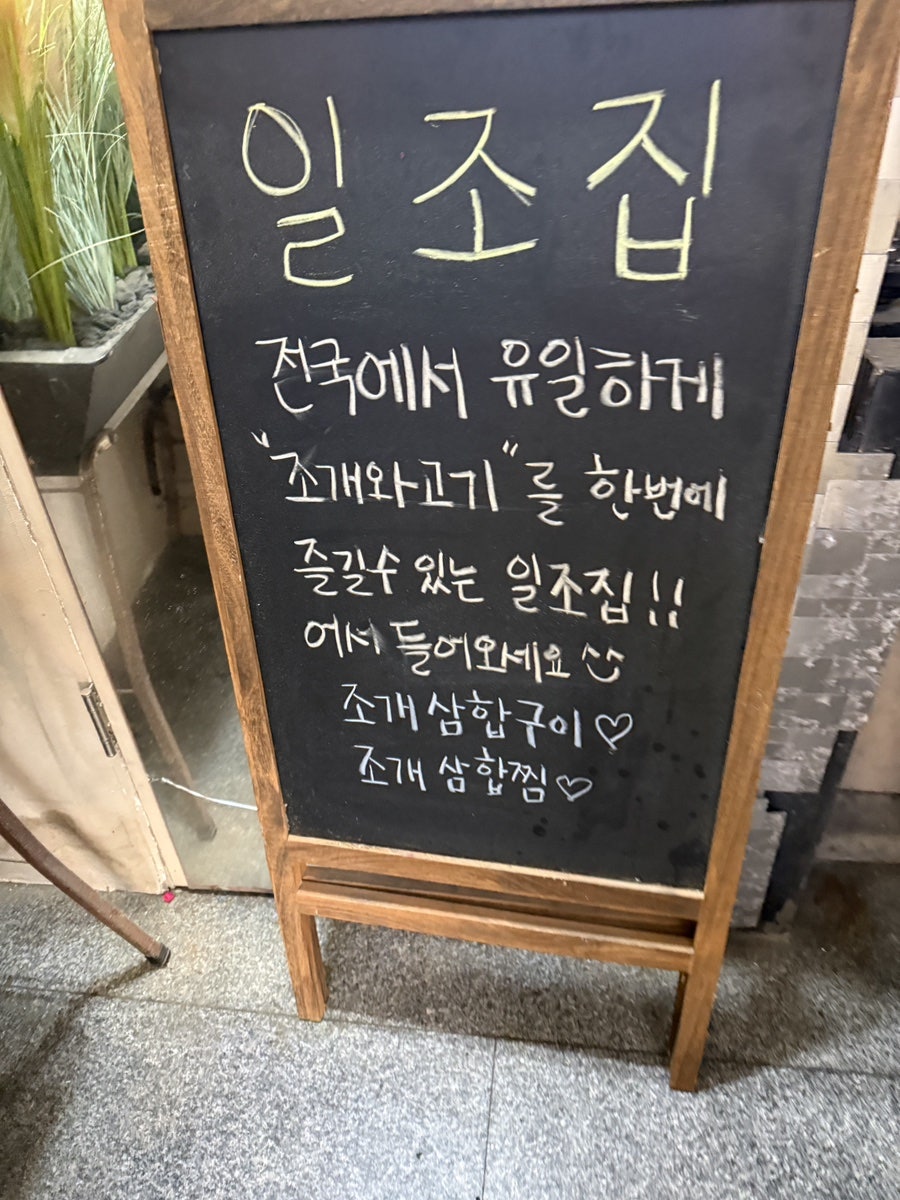 일조집
전국에서 유일하게
"조개와고기"를 한번에
즐길수 있는 일조집!!
어서 들어와세요 ^^
조개 삼합구이♡
조개 삼합찜♡